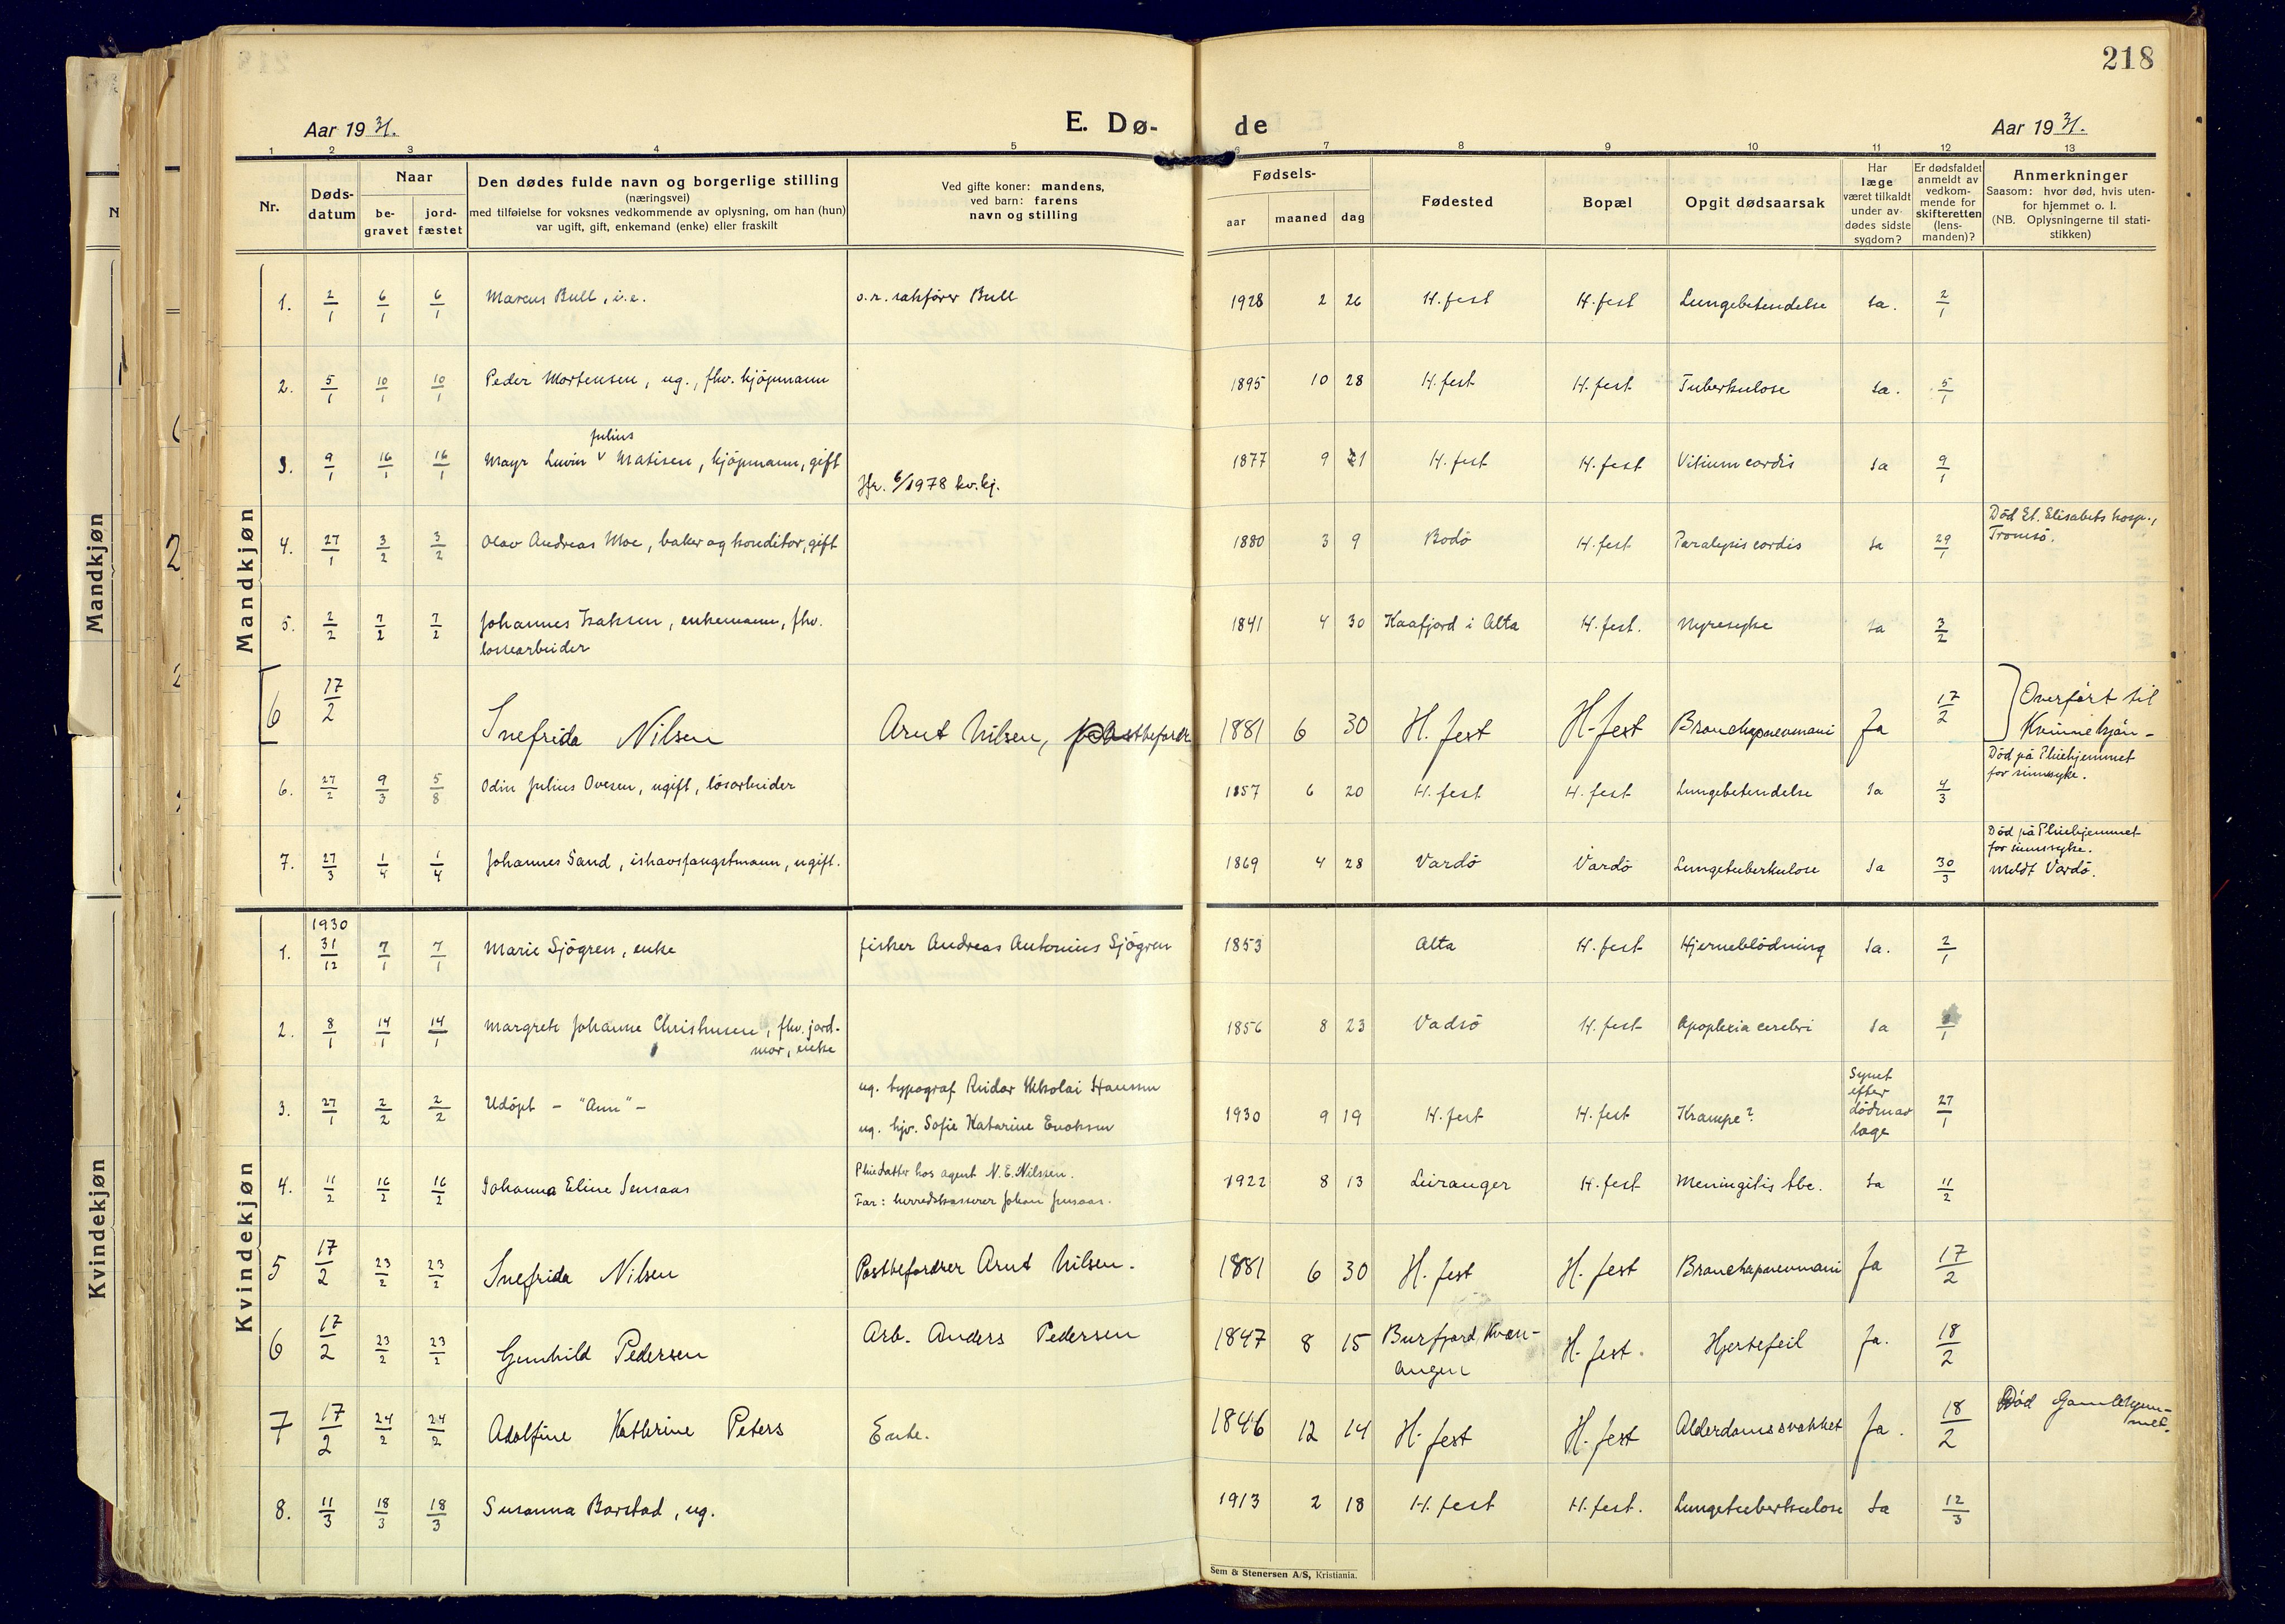 218
Aar 1931.
E. Dø-
de
Aar 1931.
1 2 3 4 5 6 7 8 9 10 11 12 13
Nr.
Døds-
datum
Naar
be-
gravet
jord-
fæstet
Den dødes fulde navn og borgerlige stilling
(næringsvei)
med tilføielse for voksnes vedkommende av oplysning, om han (hun)
var ugift, gift, enkemand (enke) eller fraskilt
Ved gifte koner: mandens,
ved barn: farens
navn og stilling
Fødsels-
aar maaned dag
Fødested
Bopæl
Opgit dødsaarsak
Har
læge
været tilkaldt
under av-
dødes sidste
sygdom?
Er dødsfaldet
anmeldt av
vedkom-
mende for
skifteretten
(lens-
manden)?
Anmerkninger
Saasom: hvor død, hvis uten-
for hjemmet o. l.
(NB. Oplysningerne til stati-
stikken)
Mandkjøn
1. 2/1 6/1 6/1 Marcus Bull, i.e. o.r. sakfører Bull 1928 2 26 H.fest H.fest Lungebetendelse Ja. 2/1
2. 5/1 10/1 10/1 Peder Mortensen, ug., fhv. kjöpmann 1895 10 28 H.fest H.fest Tuberkulose Ja. 5/1
Julius
3. 9/1 16/1 16/1 Mayr Levin v Matisen, kjöpmann, gift 1877 9 21 H.fest H.fest Vitium cordis Ja 9/1
Jfr. 6/1978 kv.kj.
Död St. Elisabets hosp.,
Tromsö.
4. 27/1 3/2 3/2 Olav Andreas Moe, baker og konditor, gift 1880 3 9 Bodö H.fest Paralysis cordis Ja 29/1
5. 2/2 7/2 7/2 Johannes Isaksen, enkemann, fhv. 1841 4 30 Kaafjord i Alta H.fest. Nyresyke Ja 3/2
lossearbeider
6 17/2 Snefrida Nilsen Arnt Nilsen, postbefordrer 1881 6 30 H.fest H-fest Bronchopnevmoni Ja 17/2 Overført til
Kvinnekjön-
Död på Pleiehjemmet
for sinnssyke.
6. 27/2 9/3 5/8 Odin Julius Ovesen, ugift, lösarbeider 1857 6 20 H.fest H.fest Lungebetendelse Ja 4/3
Död på Pleiehjemmet
for sinnssyke.
7. 27/3 1/4 1/4 Johannes Sand, ishavsfangstmann, ugift. 1869 4 28 Vardö Vardö Lungetuberkulose Ja 30/3 Meldt Vardö.
Kvindekjøn
1930
1. 31/12 7/1 7/1 Marie Sjögren, enke fisker Andreas Antonius Sjögren 1853 Alta H.fest Hjerneblödning Ja. 2/1
2. 8/1 14/1 14/1 Margrete Johanne Christensen, fhv. jord- 1856 8 23 Vadsö H.fest Apoplexia cerebri Ja
mor, enke
ug. typograf Reidar Nikolai Hansen
3. 27/1 2/2 2/2 Udöpt - "Ann" - 1930 9 19 H.fest H.fest Krampe? Synet
efter
döden av
læge 27/1
ug. hjv. Sofie Katarine Enoksen
Pleiedatter hos agent N.E. Nilssen.
4. 11/2 16/2 16/2 Johanna Eline Jensaas 1922 8 13 Leiranger H.fest Meningitis tbc. Ja 11/2
Far: herredskasserer Johan Jensaas.
5 17/2 23/2 23/2 Snefrida Nilsen Postbefordrer Arnt Nilsen. 1881 6 30 H.fest H.fest Bronchopnevmoni Ja 17/2
6 17/2 23/2 23/2 Gunhild Pedersen Arb. Anders Pedersen 1847 8 15 Burfjord, Kvæn-
angen H.fest. Hjertefeil Ja. 18/2
7 17/2 24/2 24/2 Adolfine Kathrine Peters Enke. 1846 12 14 H.fest H.fest Alderdomssvakhet Ja. 18/2 Död Gamlehjem-
met.
8. 11/3 18/3 18/3 Susanna Barstad, ug. 1913 2 18 H.fest H.fest. Lungetuberkulose Ja 12/3
Sem & Stenersen A/S, Kristiania.
Mandkjøn
Kvindekjøn
N